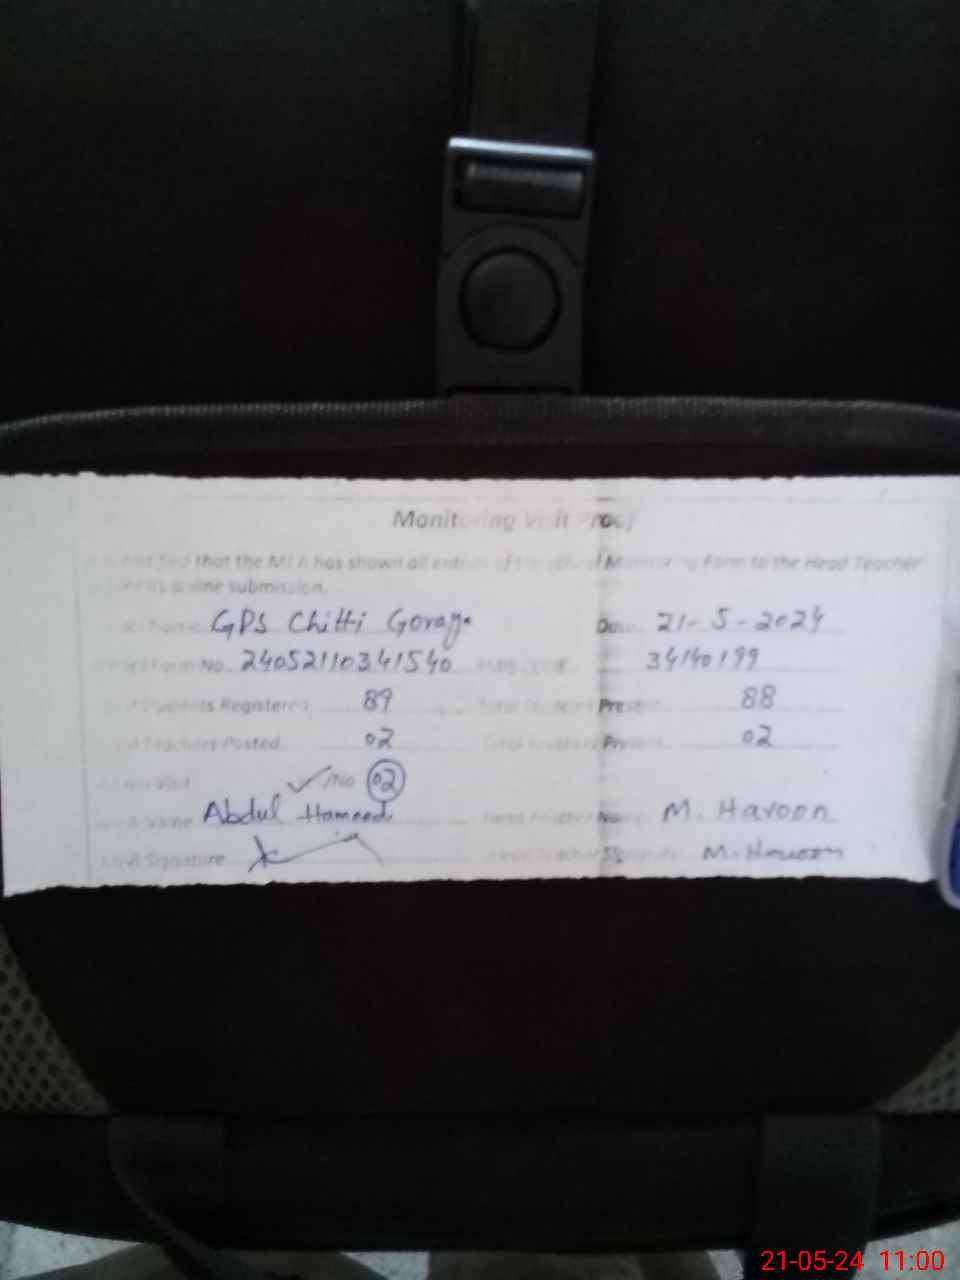 Monitoring Visit Proof
that the MEA has shown all entries of Monitoring Form to the Head Teacher
online submission.
GPS Chitti Goraya Date 21-5-2024
Form No. 24052110341540 EMIS CODE 34140199
Students Registered 89 Total Students Present 88
Teachers Posted 02 Total Teachers Present 02
Visit /No 02
Name Abdul Hameed Head Teacher Name M. Haroon
Signature Head Teacher Signature M. Haroon
21-05-24 11:00